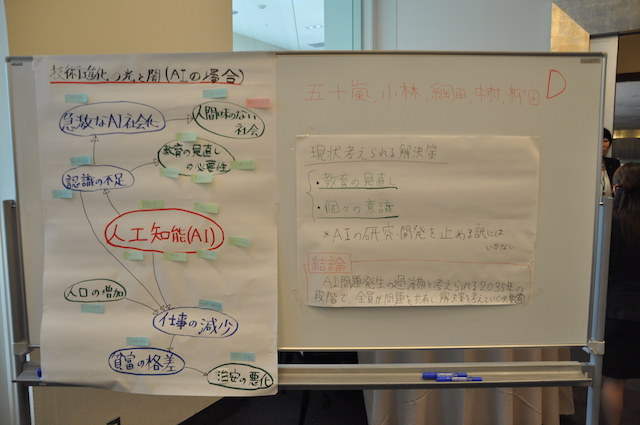 技術進化の光と闇(AIの場合)
急激なAI社会化
人間味のない
社会
教育の見直し
の必要性
認識の不足
人工知能(AI)
人口の増加
仕事の減少
貧富の格差
治安の悪化
五十嵐、小林、綱田、中村、村田
D
現状考えられる解決策
・教育の見直し
・個々の意識
*AIの研究開発を止める訳には
いかない
結論
AI問題発生の過渡期と考えられる2035年の
段階で、全員が問題を共有し解決策を考えていく